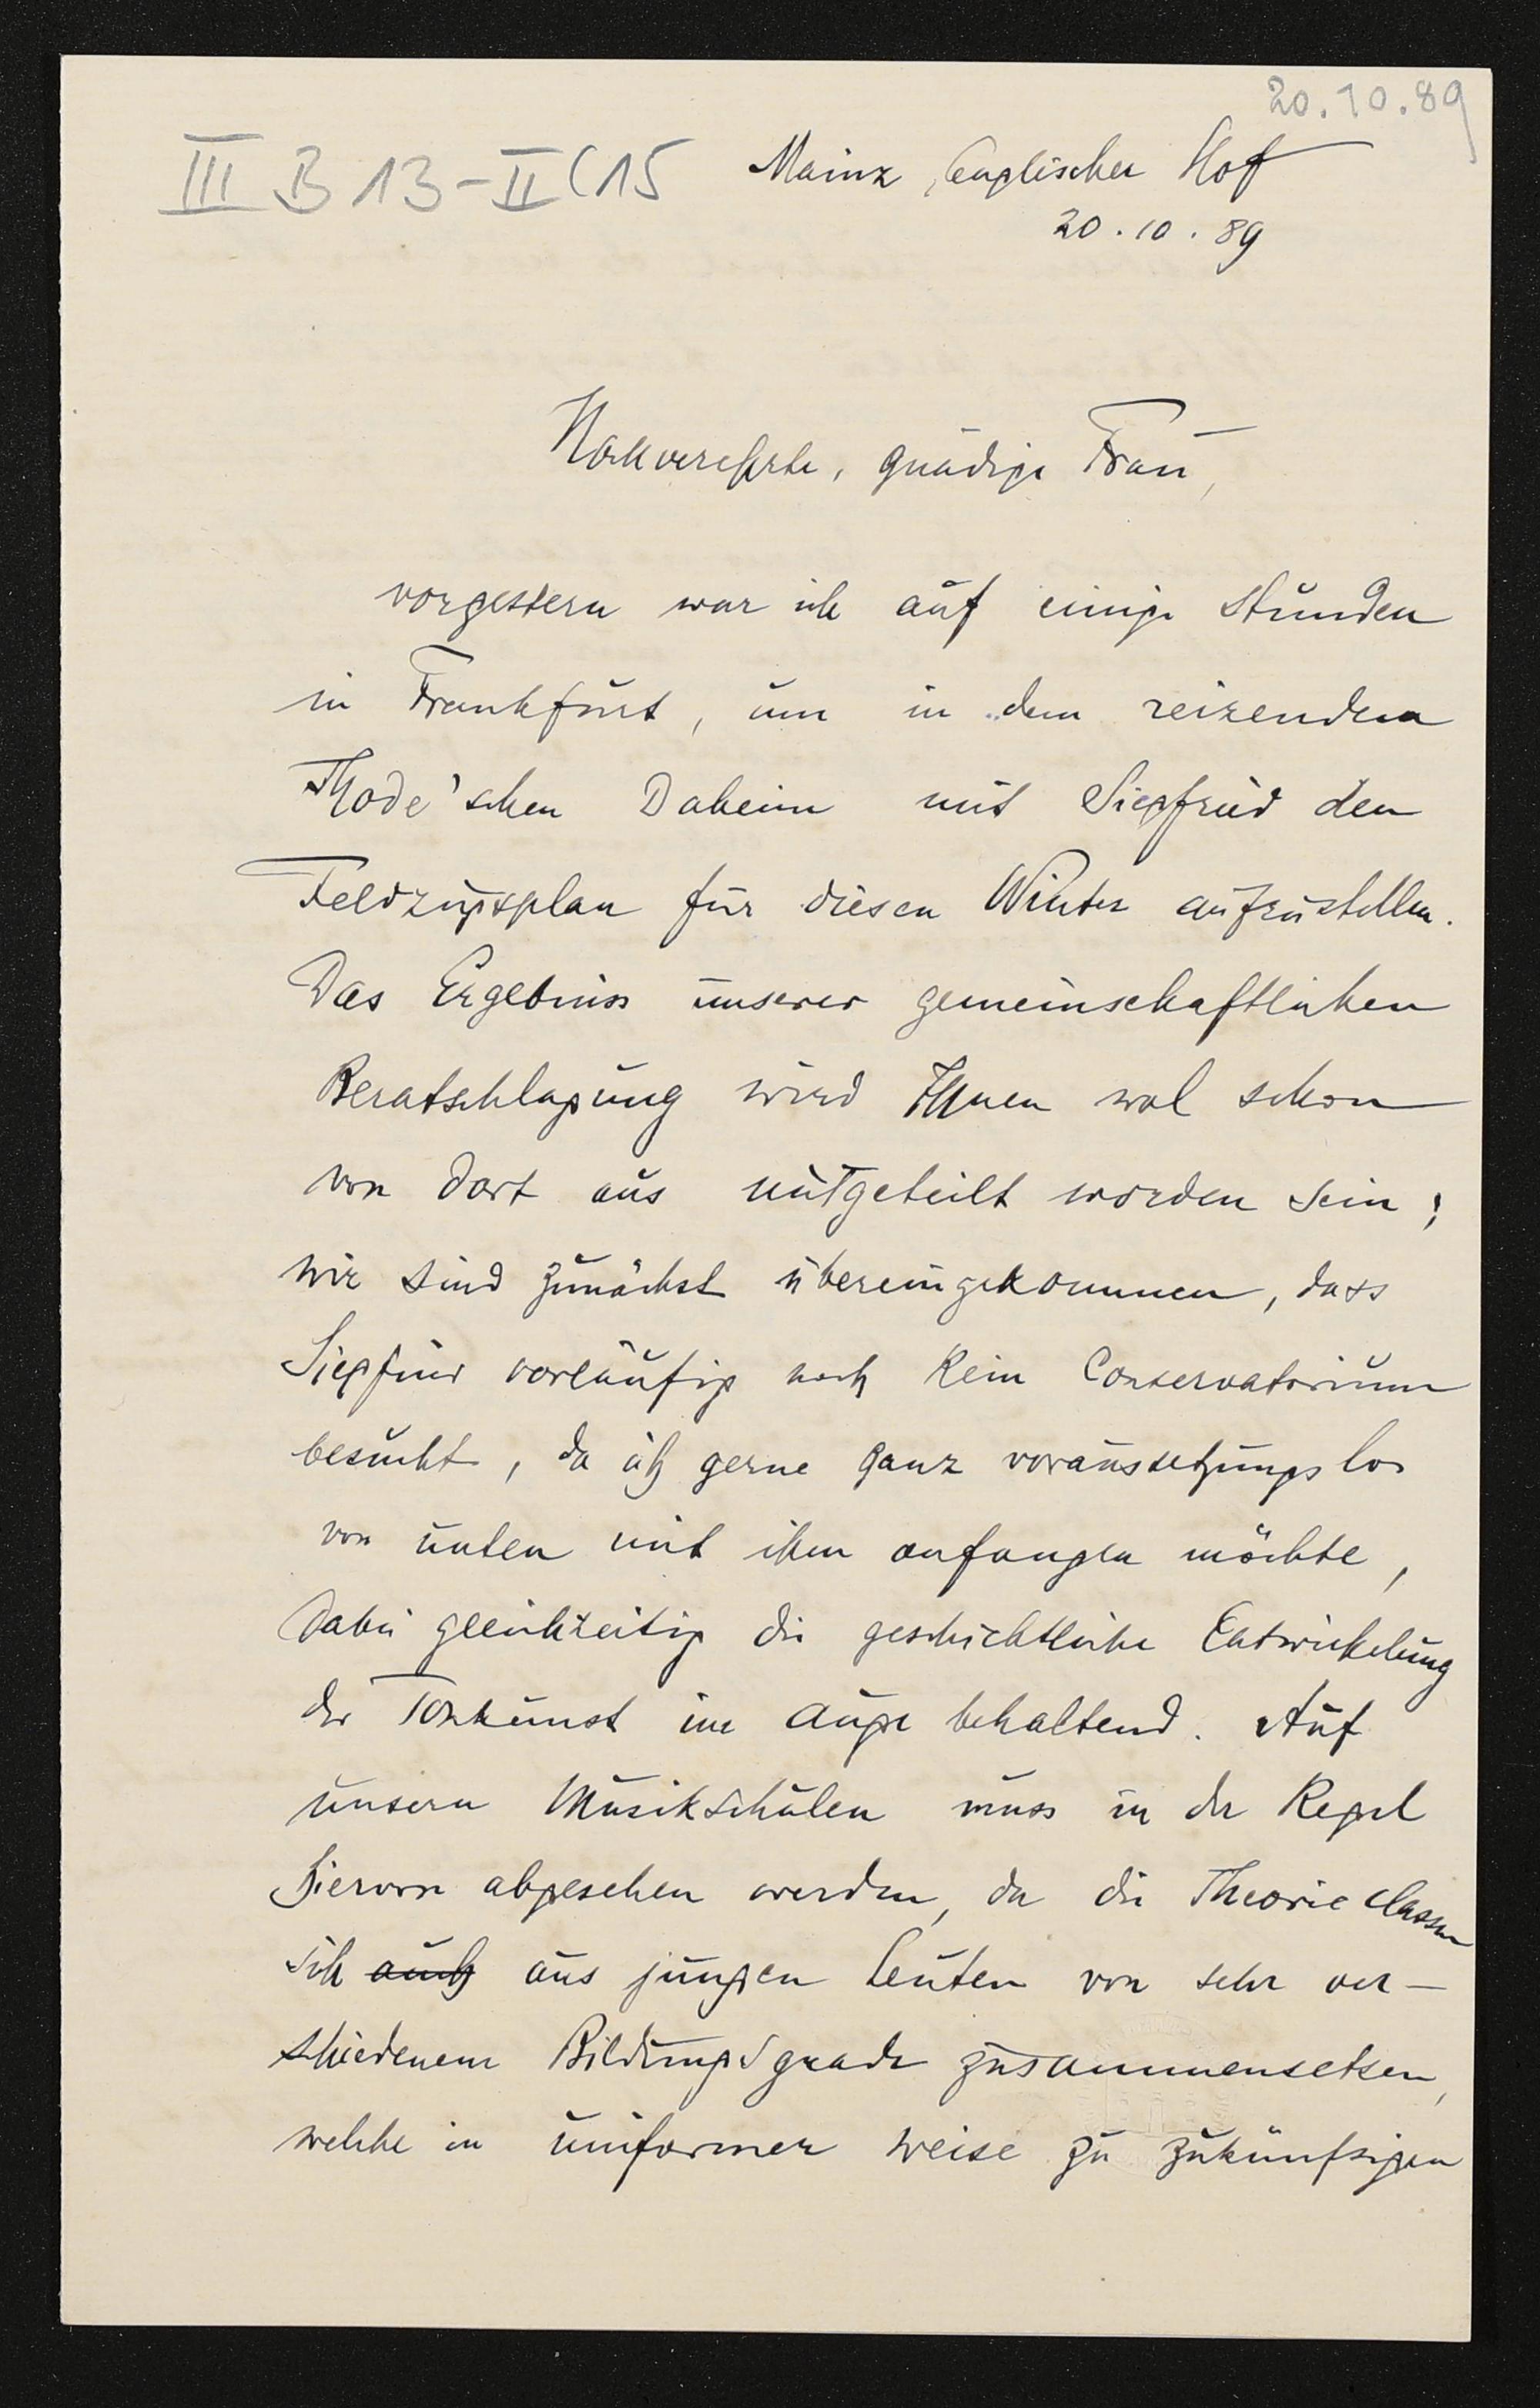 20.10.89
III B 13-II (15
Mainz, Englischer Hof
20.10.89
Hochverehrte, gnädige Frau,
vorgestern war ich auf einige Stunden
in Frankfurt, um in dem reizenden
Thode'schen Daheim mit Siegfried den
Feldzugsplan für diesen Winter aufzustellen.
Das Ergebniss unserer gemeinschaftlichen
Beratschlagung wird Ihnen wol schon
von dort aus mitgeteilt worden sein;
wir sind zunächst übereingekommen, dass
Siegfried vorläufig noch kein Conservatorium
besucht, da ich gerne ganz voraussetzungslos
von unten mit ihm anfangen möchte,
dabei gleichzeitig die geschichtliche Entwickelung
der Tonkunst im Auge behaltend. Auf
unsern Musikschulen muss in der Regel
hiervon abgesehen werden, da die Theorieclassen
sich auch aus jungen Leuten von sehr ver-
schiedenem Bildungsgrade zusammensetzen,
welche in uniformer Weise zu zukünftigen